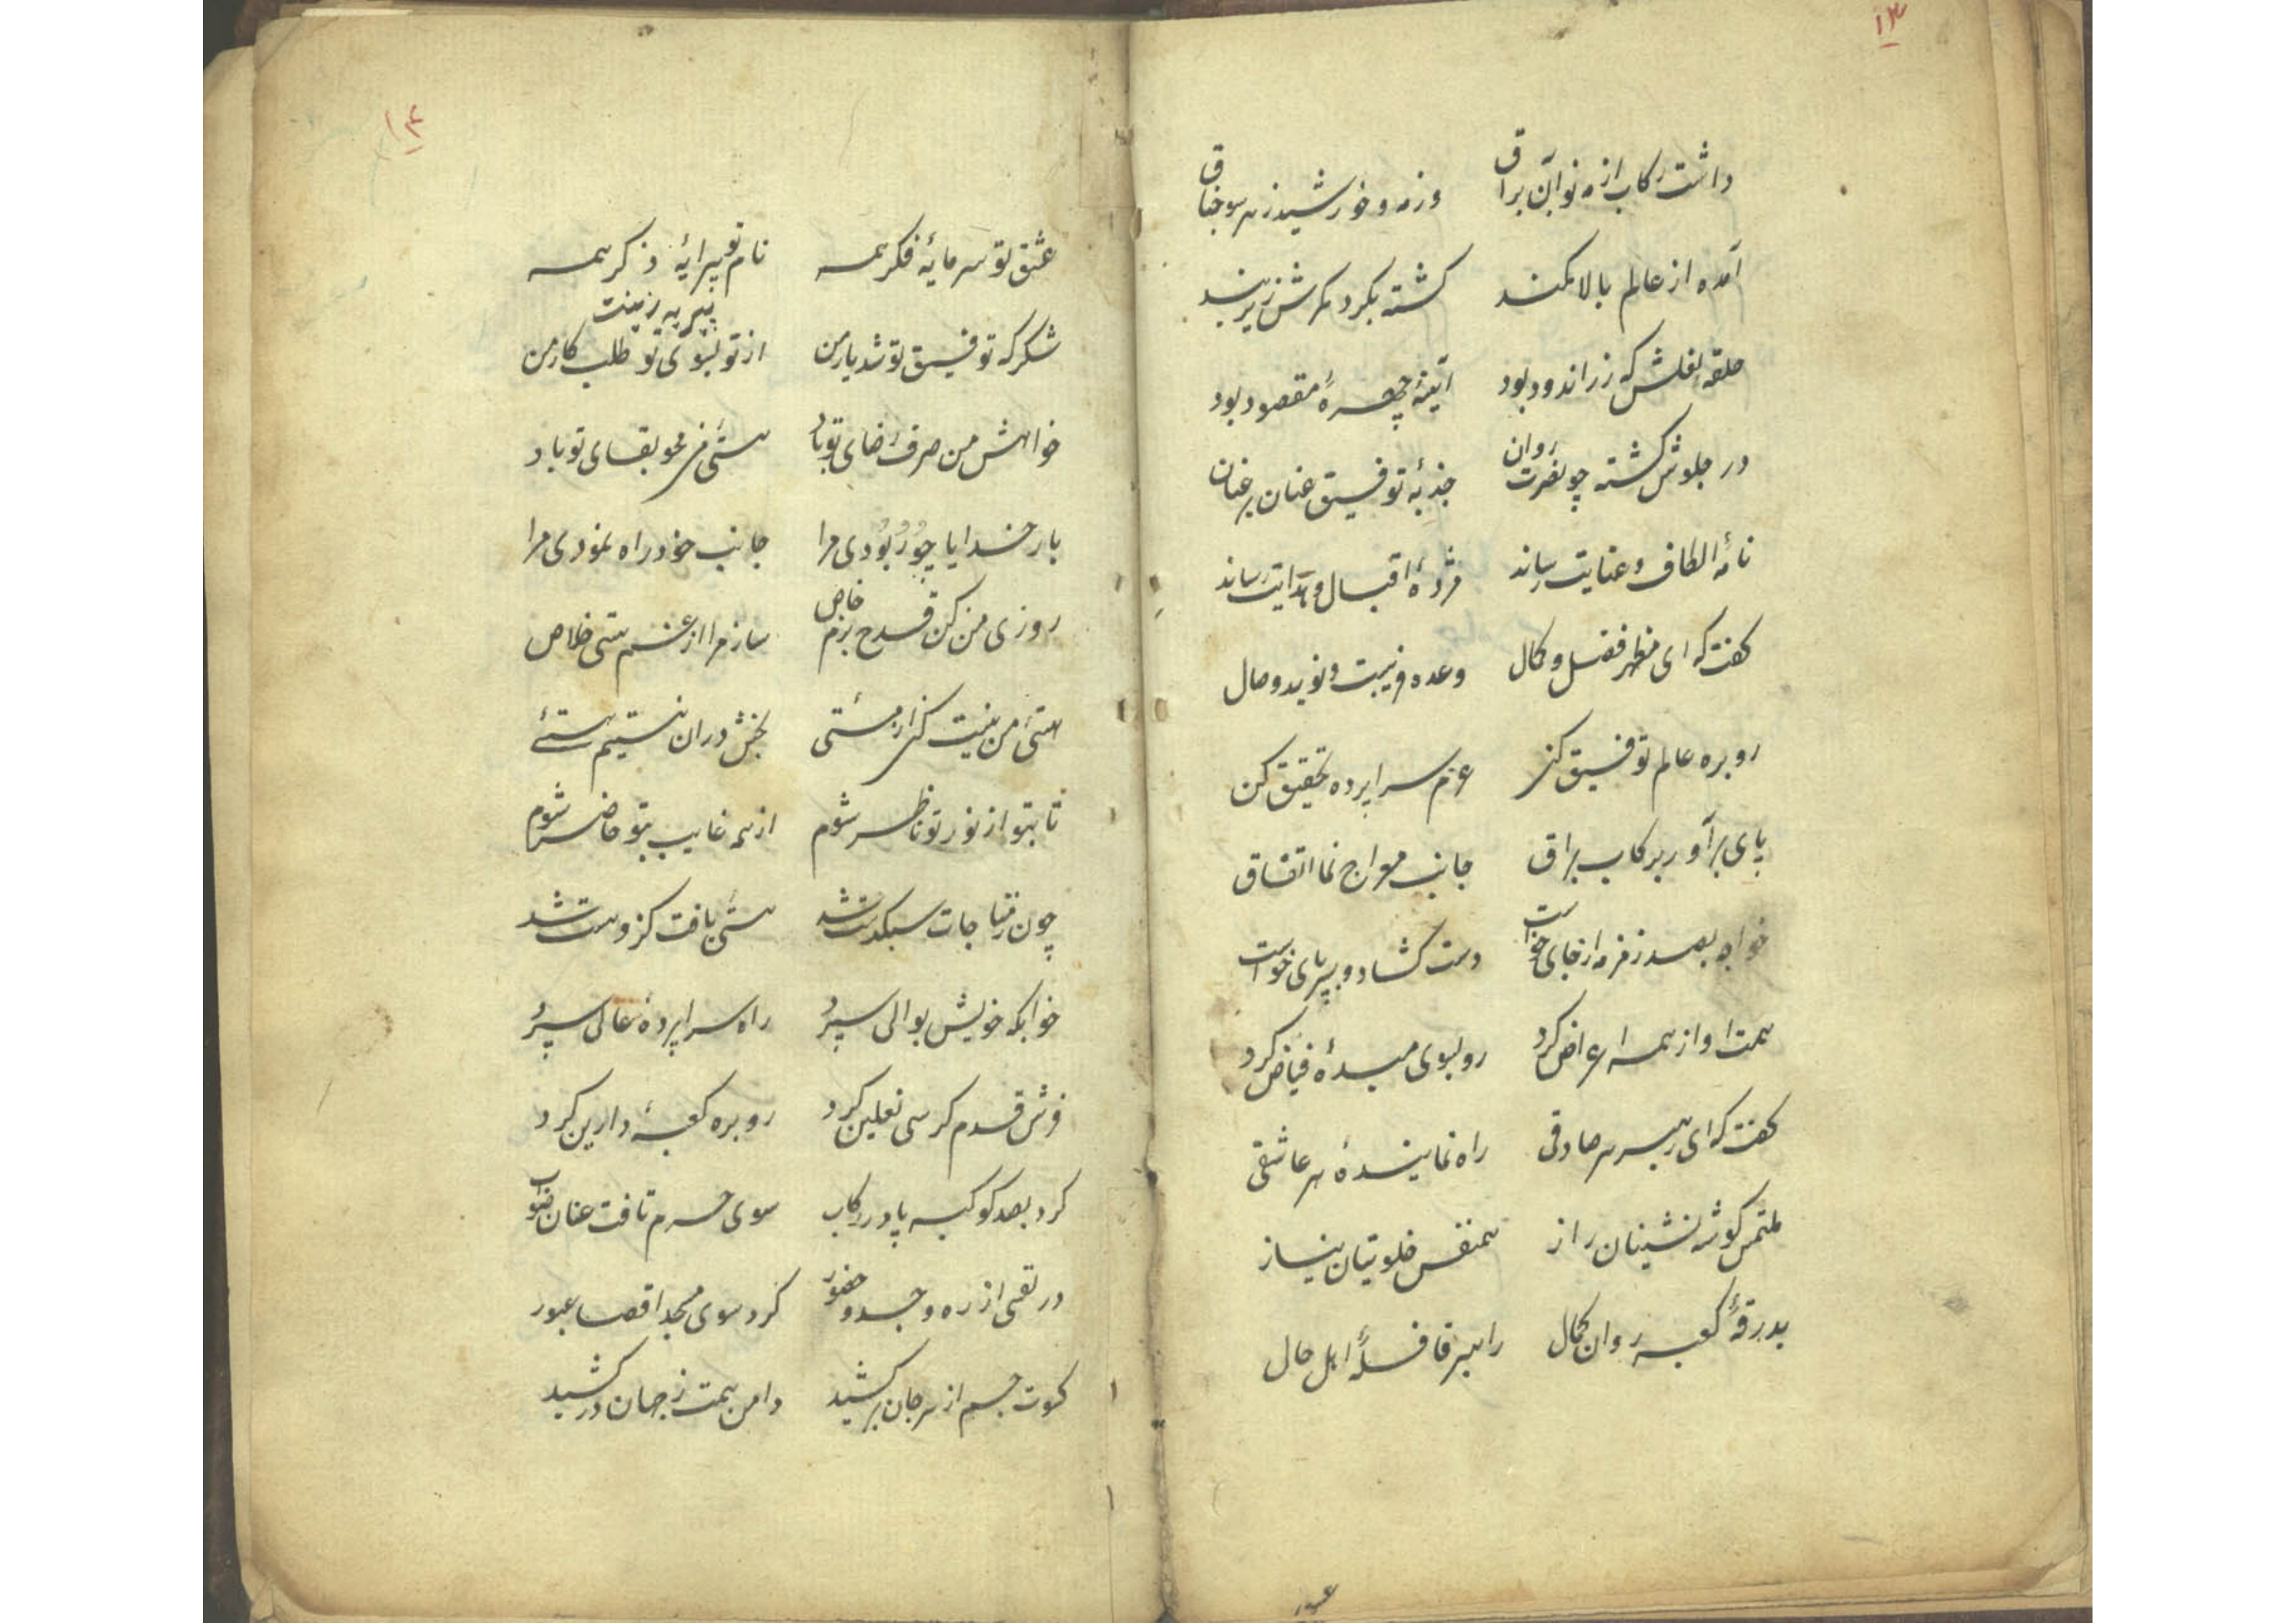 ۱۳
داشت رکاب از مه نو آن براق وز مه و خورشید ز هر سو جناق
آمده از عالم بالا کمند کشته بکرد کمرش زیربند
حلقه نعلش که زر اندود بود آینهٔ چهرهٔ مقصود بود
در جلوش کشته چو نصرت روان جذبهٔ توفیق عنان بر عنان
نامهٔ الطاف و عنایت رساند مژدهٔ اقبال و هدایت رساند
کفت که ای مظهر فضل و کمال وعده قریبست و نوید وصال
رو بره عالم توفیق کن عزم سراپرده تحقیق کن
پای برآور برکاب براق جانب معراج نما اتفاق
خواجه بصد زمزمه از جای خواست دست کشاد و بسر پای خواست
همت او از همه اعراض کرد رو بسوی مبدهٔ فیاض کرد
کفت که ای رهبر هر صادقی راه نمایندهٔ هر عاشقی
ملتمس کوشه نشینان راز همنفس خلوتیان نیاز
بدرقهٔ کعبه روان کمال راهبر قافلهٔ اهل حال
۱۴
عشق تو سرمایهٔ فکر همه نام تو پیرایهٔ ذکر همه
پیرایه زینت
شکر که توفیق تو شد یار من از تو بسوی تو طلب کار من
خواهش من صرف رضای تو باد هستی من محو بقای تو باد
بار خدایا چو ربودی مرا جانب خود راه نمودی مرا
روزی من کن قدح بزم خاص ساز مرا از غم هستی خلاص
هستی من نیست کن از مستی بخش در آن نیستیم هستئی
تا بتو از نور تو ناظر شوم از همه غایب بتو حاضر شوم
چون ز مناجات سبکدست شد هستی یافت کزو مست شد
خوابکه خویش بوالی سپرد راه سراپردهٔ عالی سپرد
فرش قدم کرسی نعلین کرد رو بره کعبهٔ دارین کرد
کرد بصد کوکبه پا در رکاب سوی حرم تافت عنان صواب
در نفسی از ره وجد و حضور کرد سوی مسجد اقصا عبور
کسوت جسم از سر جان برکشید دامن همت ز جهان درکشید